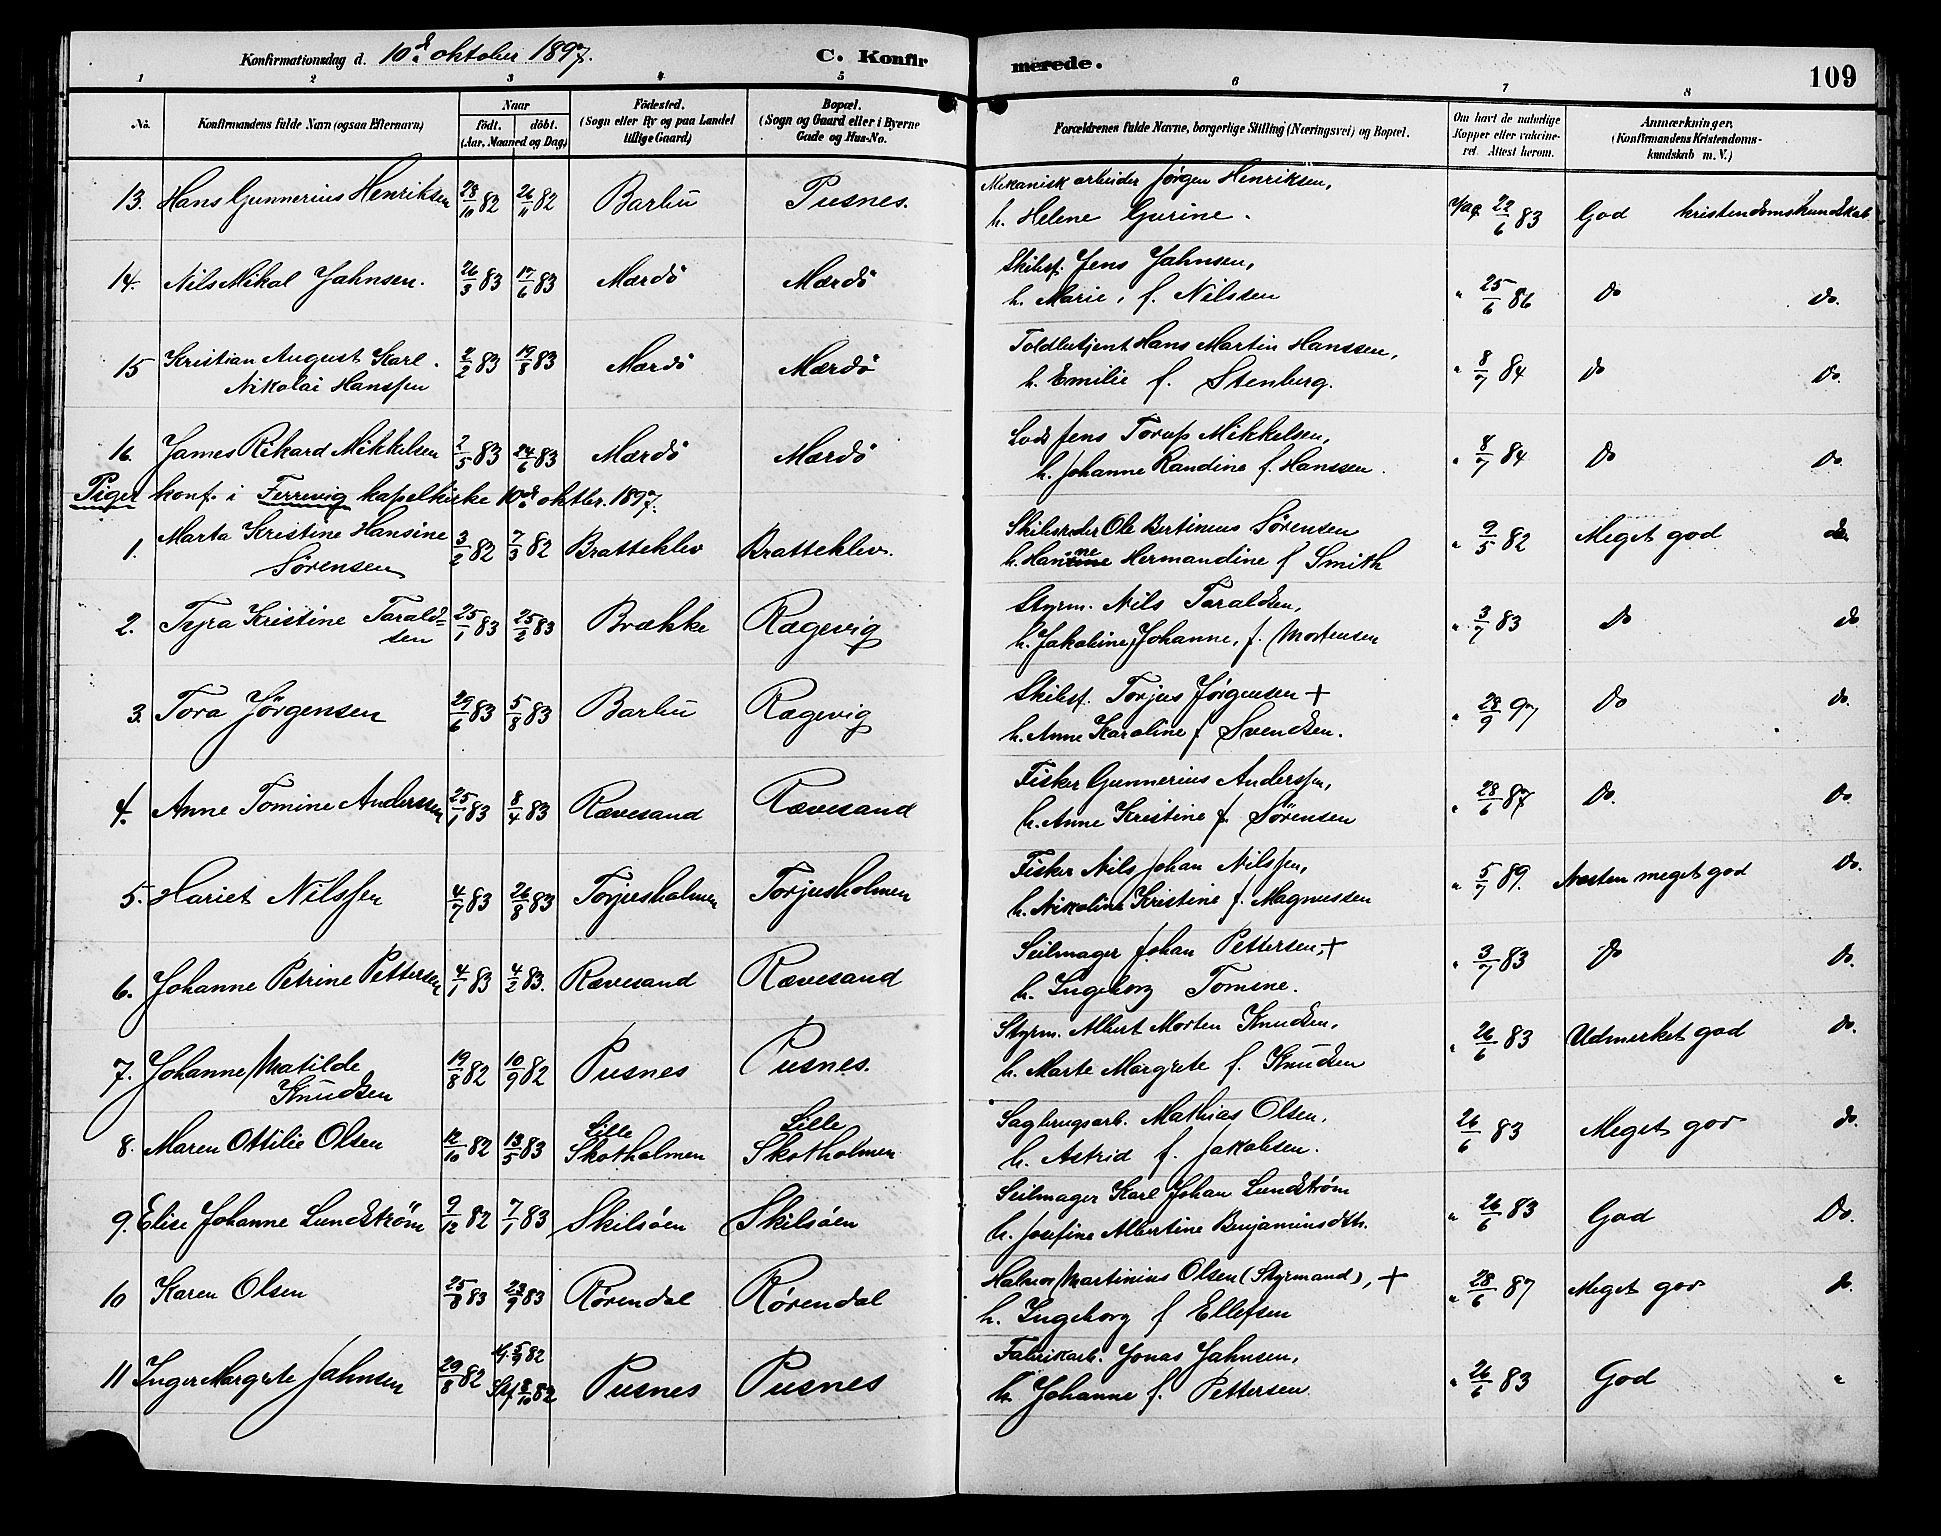 Konfirmationsdag d. 10de oktober 1897. C. Konfirmerede. 109
1 2 3 4 5 6 7 8
No. Konfirmandens fulde Navn (ogsaa Efternavn) Naar födt. döbt. (Aar, Maaned og Dag) Födested. (Sogn eller By og paa Landet tillige Gaard) Bopæl. (Sogn og Gaard eller i Byerne Gade og Hus-No. Forældrenes fulde Navne, borgerlige Stilling (Næringsvei) og Bopæl. Om havt de naturlige Kopper eller vakcineret. Attest herom. Anmærkninger. (Konfirmandens Kristendomskundskab m. V.)
13. Hans Gunnerius Henriksen 28/10 82 26/11 82 Barbu Pusnes. Mekanisk arbeider Jørgen Henriksen,
h. Helene Gurine. Vac 22/6 83 God kristendomskundskab
14. Nils Mikal Jahnsen. 26/3 83 17/6 83 Mærdö Mærdö Skibsf. Jens Jahnsen,
h. Marie, f. Nilssen " 25/6 86 do do.
15 Kristian August Karl 2/2 83 19/8 83 Mærdö Mærdö Toldbetjent Hans Martin Hanssen,
Nikolai Hanssen h. Emilie f. Stenberg. " 8/7 84 do do.
16. James Rikard Mikkelsen 2/5 83 24/6 83 Mærdö Mærdö Lods Jens Torup Mikkelsen,
h. Johanne Randine f. Hanssen. " 8/7 84 do do.
Piger konf. i Færvig kapelkirke 10de oktbr. 1897.
1. Marta Kristine Hansine 3/2 82 7/3 82 Bratteklev Bratteklev. Skibsreder Ole Bertinius Sörensen
Sörensen h. Hanne Hermandine f Smith " 9/5 82 Meget god do
2. Tyra Kristine Tarald= 25/1 83 25/2 83 Brække Rægevig Styrm. Nils Taraldsen,
sen h. Jakobine Johanne, f. Mortensen " 3/7 83 do do
3. Tora Jörgensen 29/6 83 5/8 83 Barbu Rægevig Skibsf. Torjus Jørgensen +
h. Anne Karoline f Svendsen. " 28/9 97 do do.
4. Anne Tomine Anderssen 25/1 83 8/4 83 Rævesand Rævesand Fisker Gunnerius Anderssen,
h. Anne Kristine f. Sørensen " 28/6 87 do. do.
5. Hariet Nilssen 4/7 83 26/8 83 Torjusholmen Torjusholmen Fisker Nils Johan Nilssen,
h. Nikoline Kristine f. Magnussen " 5/7 89. Næsten meget god do.
6. Johanne Petrine Pettersen 4/1 83 4/2 83. Rævesand Rævesand Seilmager Johan Pettersen, +
h. Ingeborg Tomine. " 3/7 83 do do.
7. Johanne Matilde 19/8 82 10/9 82 Pusnes Pusnes. Styrm. Albert Morten Knudsen,
Knudsen h. Marte Margrete f. Knudsen " 26/6 83 Udmerket god do.
8. Maren Ottilie Olsen 12/10 82 13/5 83 Lille Skotholmen Lille Skotholmen Sagbrugsarb. Mathias Olsen,
h. Astrid f. Jakobsen. 26/6 83 Meget god do.
9. Elise Johanne Lundström 9/12 82 7/1 83 Skilsöen Skilsöen Seilmager Karl Johan Lundstrøm
h. Josefine Albertine Benjaminsdtr. " 26/6 83 God Do.
10 Karen Olsen 25/8 83 23/9 83 Rørendal Rørendal Halvor Martinius Olsen (Styrmand), +
h. Ingeborg f Ellefsen " 28/6 87 Meget god do.
11 Inger Margrete Jahnsen 29/8 82 5/9 82 8/10 82 Pusnes Pusnes Fabrikarb. Jonas Jahnsen,
h. Johanne f. Pettersen " 26/6 83 God "